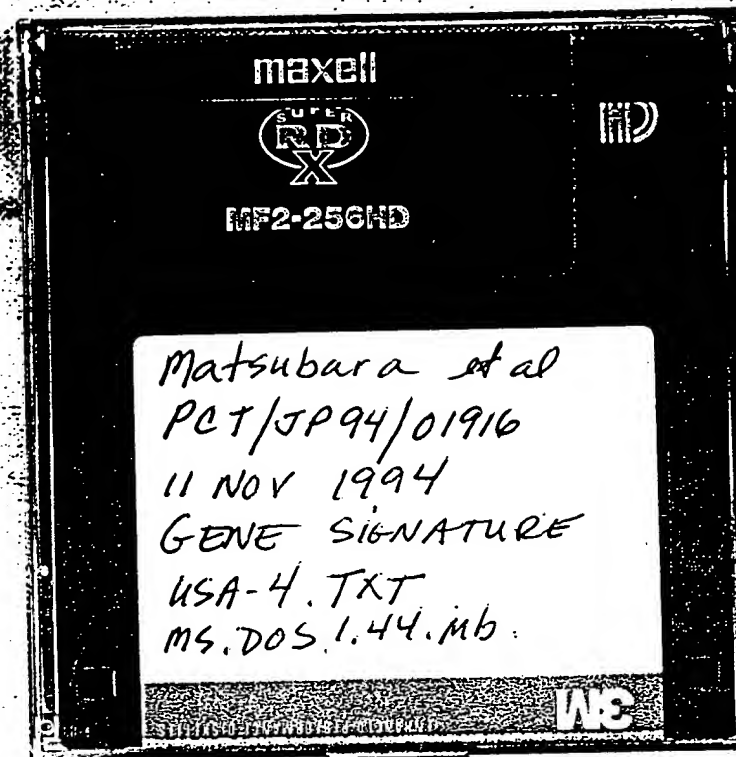 maxell
HD
SUPER
RD
X
MF2-256HD
Matsubara et al
PCT/JP94/01916
11 NOV 1994
GENE SIGNATURE
USA-4.TXT
MS.DOS.1.44.Mb.
3M